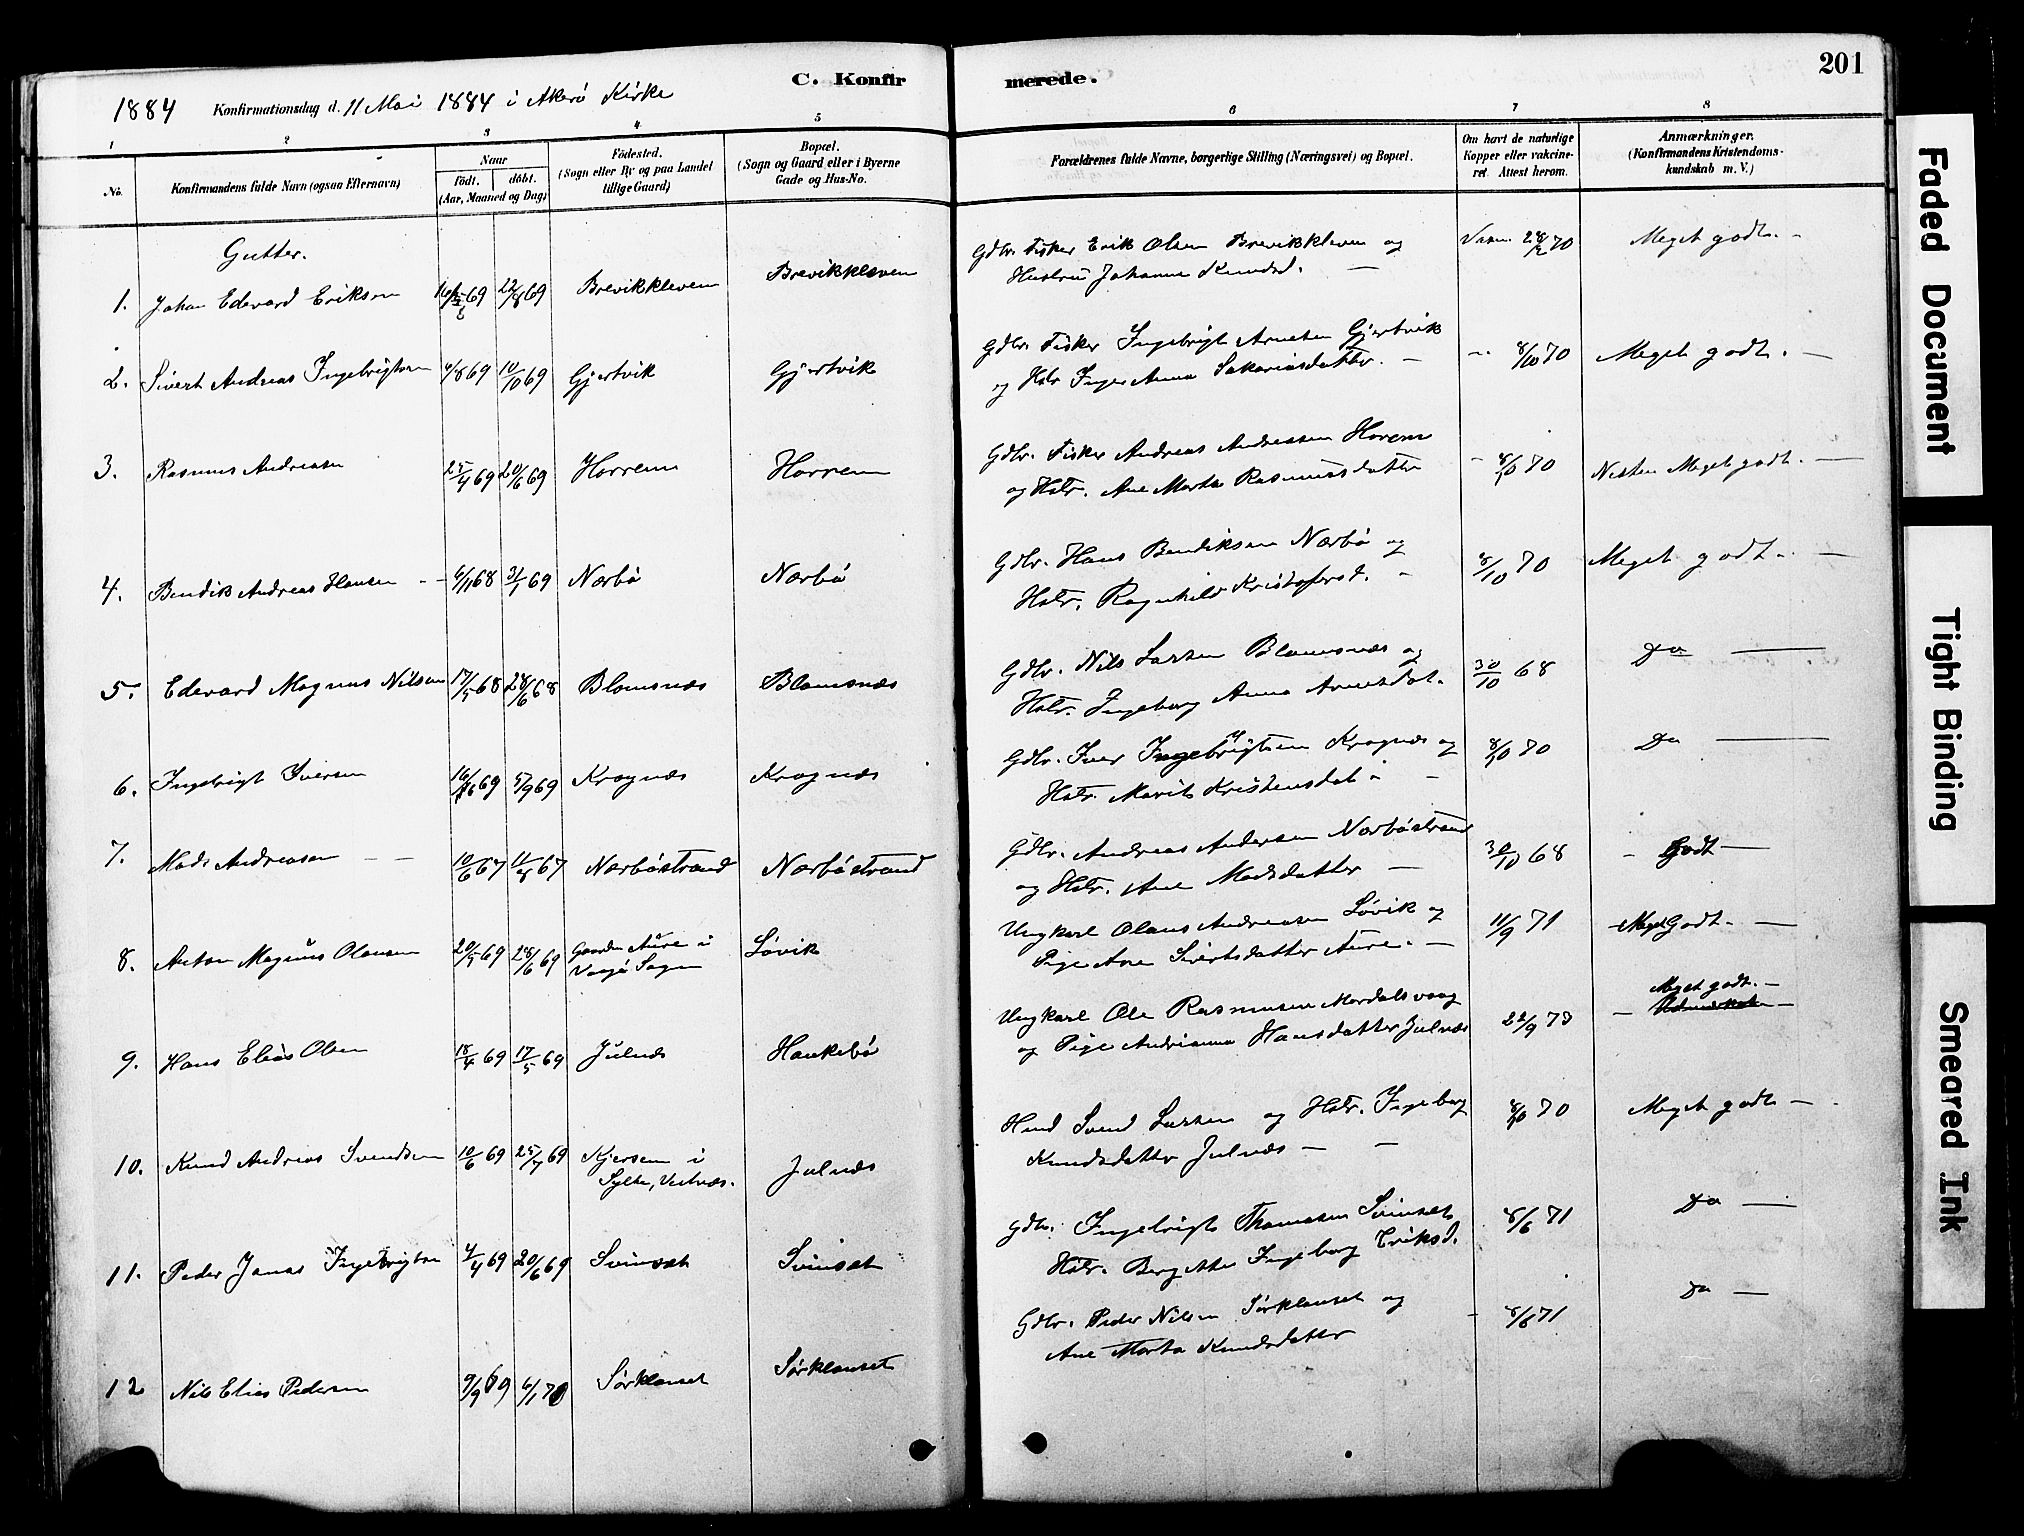 201
C. Konfirmerede.
1884 Konfirmationsdag d. 11 Mai 1884 i Akerø Kirke
1 2 3 4 5 6 7 8
No.
Konfirmandens fulde Navn (ogsaa Efternavn)
Naar
födt. döbt.
(Aar, Maaned og Dag)
Födested.
(Sogn eller By og paa Landet
tillige Gaard)
Bopæl.
(Sogn og Gaard eller i Byerne
Gade og Hus-No.
Forældrenes fulde Navne, borgerlige Stilling (Næringsvei) og Bopæl.
Om havt de naturlige
Kopper eller vakcineret. Attest herom.
Anmærkninger.
(Konfirmandens Kristendomskundskab m. V.)
Gutter.
1. Johan Edevard Eriksen 69 22/8 69 Brevikkleven Brevikkleven
Gdbr. Fisker Erik Olsen Brevikkleven og
Hustru Johanna Knudsd. —
28/2 70 Meget godt. -
2. Sivert Andreas Ingebrigtsen 4/8 69 10/10 69 Gjertvik Gjertvik
Gdbr. Fisker Ingebrigt Arnesen Gjertvik
og Hstr Inger Anna Sakariasdatter. —
8/10 70 Meget godt. —
3. Rasmus Andreasen 25/4 69 20/6 69 Horrem Horrem
Gdbr. Fisker Andreas Andreassen Horem
og Hstr. Ane Marta Rasmusdatter
70 Nesten Meget godt. —
4. Bendik Andreas Hansen 6/11 68 31/1 69 Nærbø Nærbø
Gdbr. Hans Bendiksen Nærbø og
Hstr. Ragnhild Kristofersd. -
8/10 70 Meget godt. —
5. Edevard Magnus Nilsen 17/5 68 28/6 68 Blomsnæs Blomsnæs
Gdbr. Nils Larsen Blomsnæs og
Hstr. Ingeborg Anna Arnesdat.
30/10 68 Do —
6. Ingebrigt Iversen 69 5/9 69 Kragnæs Kragnæs
Gdbr. Iver Ingebrigtsen Kragnæs og
Hstr. Marit Kristensdat. —
8/10 70 Do —
7. Mads Andreasen 10/6 67 11/8 67 Nærbøstrand Nærbøstrand
Gdbr. Andreas Andersen Nærbøstrand
og Hstr. Ane Madsdatter —
30/10 68 - Godt —
8. Anton Magnus Olausen 20/5 69 28/6 69 Gaarden Aure i
Sogn Løvik
Ungkarl Olaus Andreasen Løvik og
Pige Ane Sivertsdatter Aure. —
11/9 71 Meget Godt. —
9. Hans Elias Olsen 18/4 69 17/5 69 Julnæs Haukebø
Ungkarl Ole Rasmussen Mordalsvaag
og Pige Andrianna Hansdatter Julnæs
22/9 73 Meget godt. -
10. Knud Andreas Svendsen 10/6 69 25/7 69 Kjersem i
Sylte, Vestnæs. Julnæs
Hmd Svend Larsen og Hstr. Ingeborg
Knudsdatter Julnæs —
8/10 70 Meget godt —
11. Peder Jonas Ingebrigtsen 4/4 69 20/6 69 Svinsæt Svinsæt
Gdbr. Ingebrigt Thomasen Svinsæt
Hstr. Bergitte Ingeborg Eriksd.
8/6 71 Do —
12 Nils Elias Pedersen 9/9 69 6/1 70 Sørklauset Sørklauset
Gdbr. Peder Nilsen Sørklauset og
Ane Marta Knudsdatter
8/6 71 Do —
Faded Document
Tight Binding
Smeared Ink